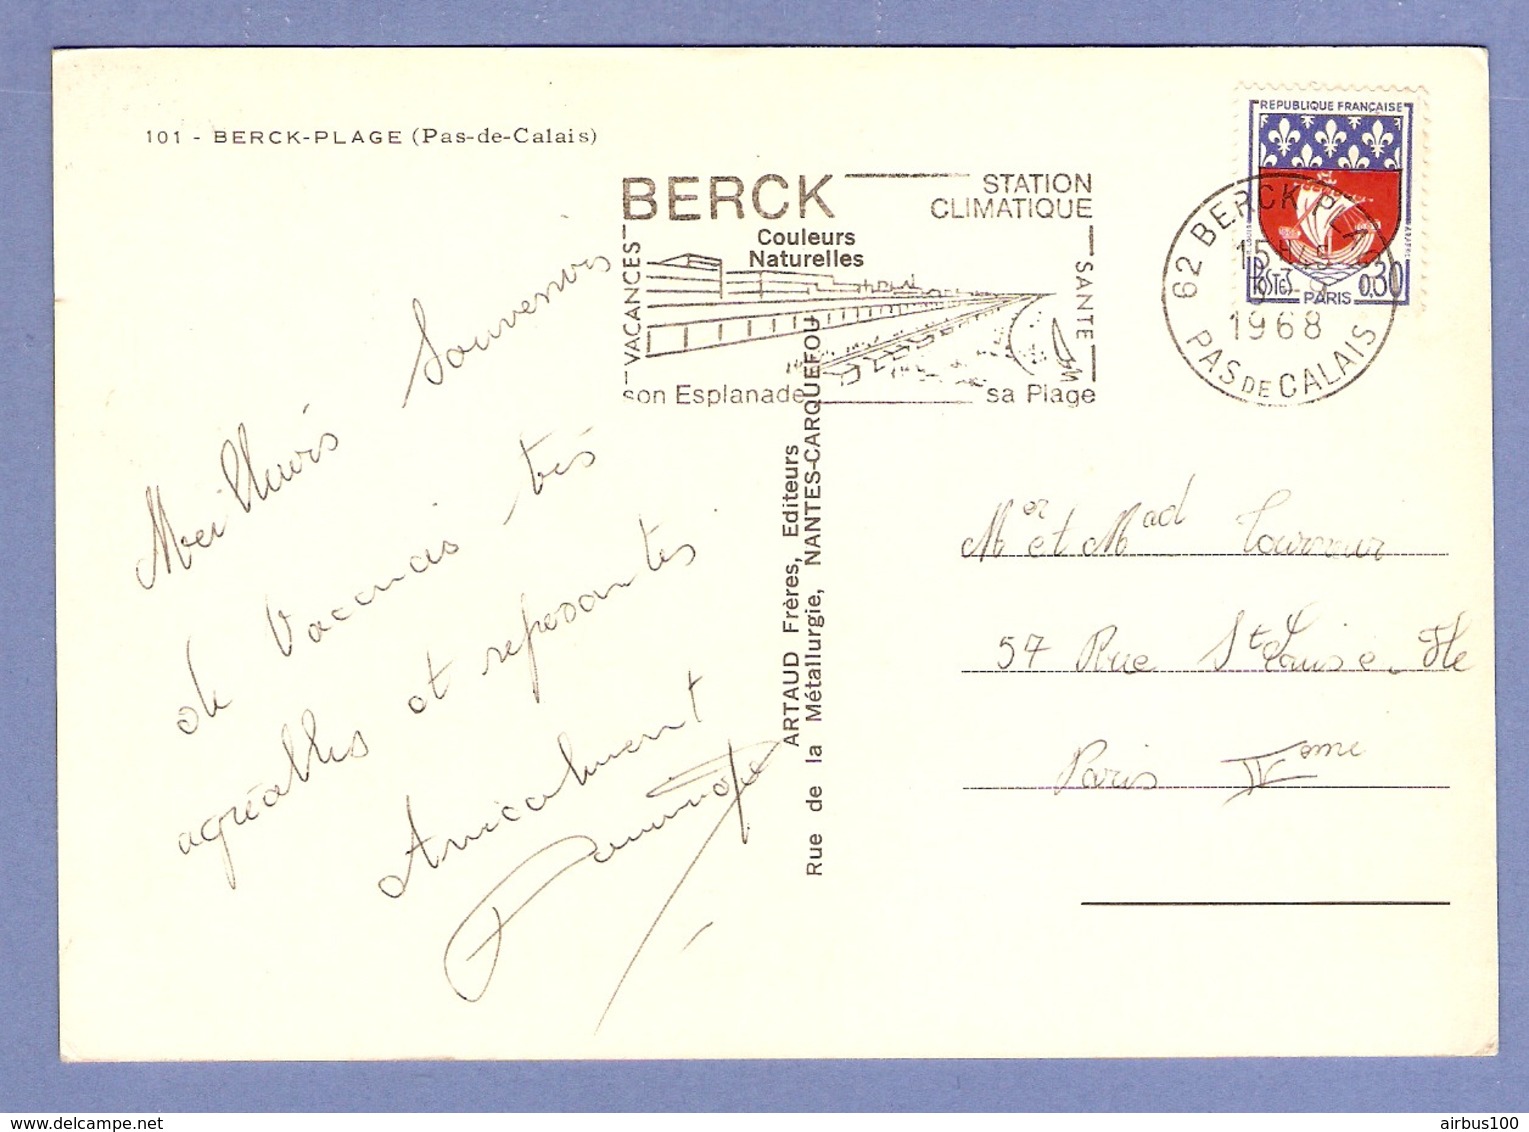 101 - BERCK-PLAGE (Pas-de-Calais)
BERCK
STATION
CLIMATIQUE
Couleurs
Naturelles
VACANCES
SANTE
son Esplanade
sa Plage
REPUBLIQUE FRANÇAISE
POSTES
PARIS
0,30
62 BERCK PLAGE
15H15
1968
PAS DE CALAIS
Meilleurs Souvenirs
de Vacances très
agréables et reposantes
Amicalement
ARTAUD Frères, Editeurs
Rue de la Métallurgie, NANTES-CARQUEFOU
Mer et Mad Tourneur
57 Rue St Louis en Ile
Paris IVeme
airbus100